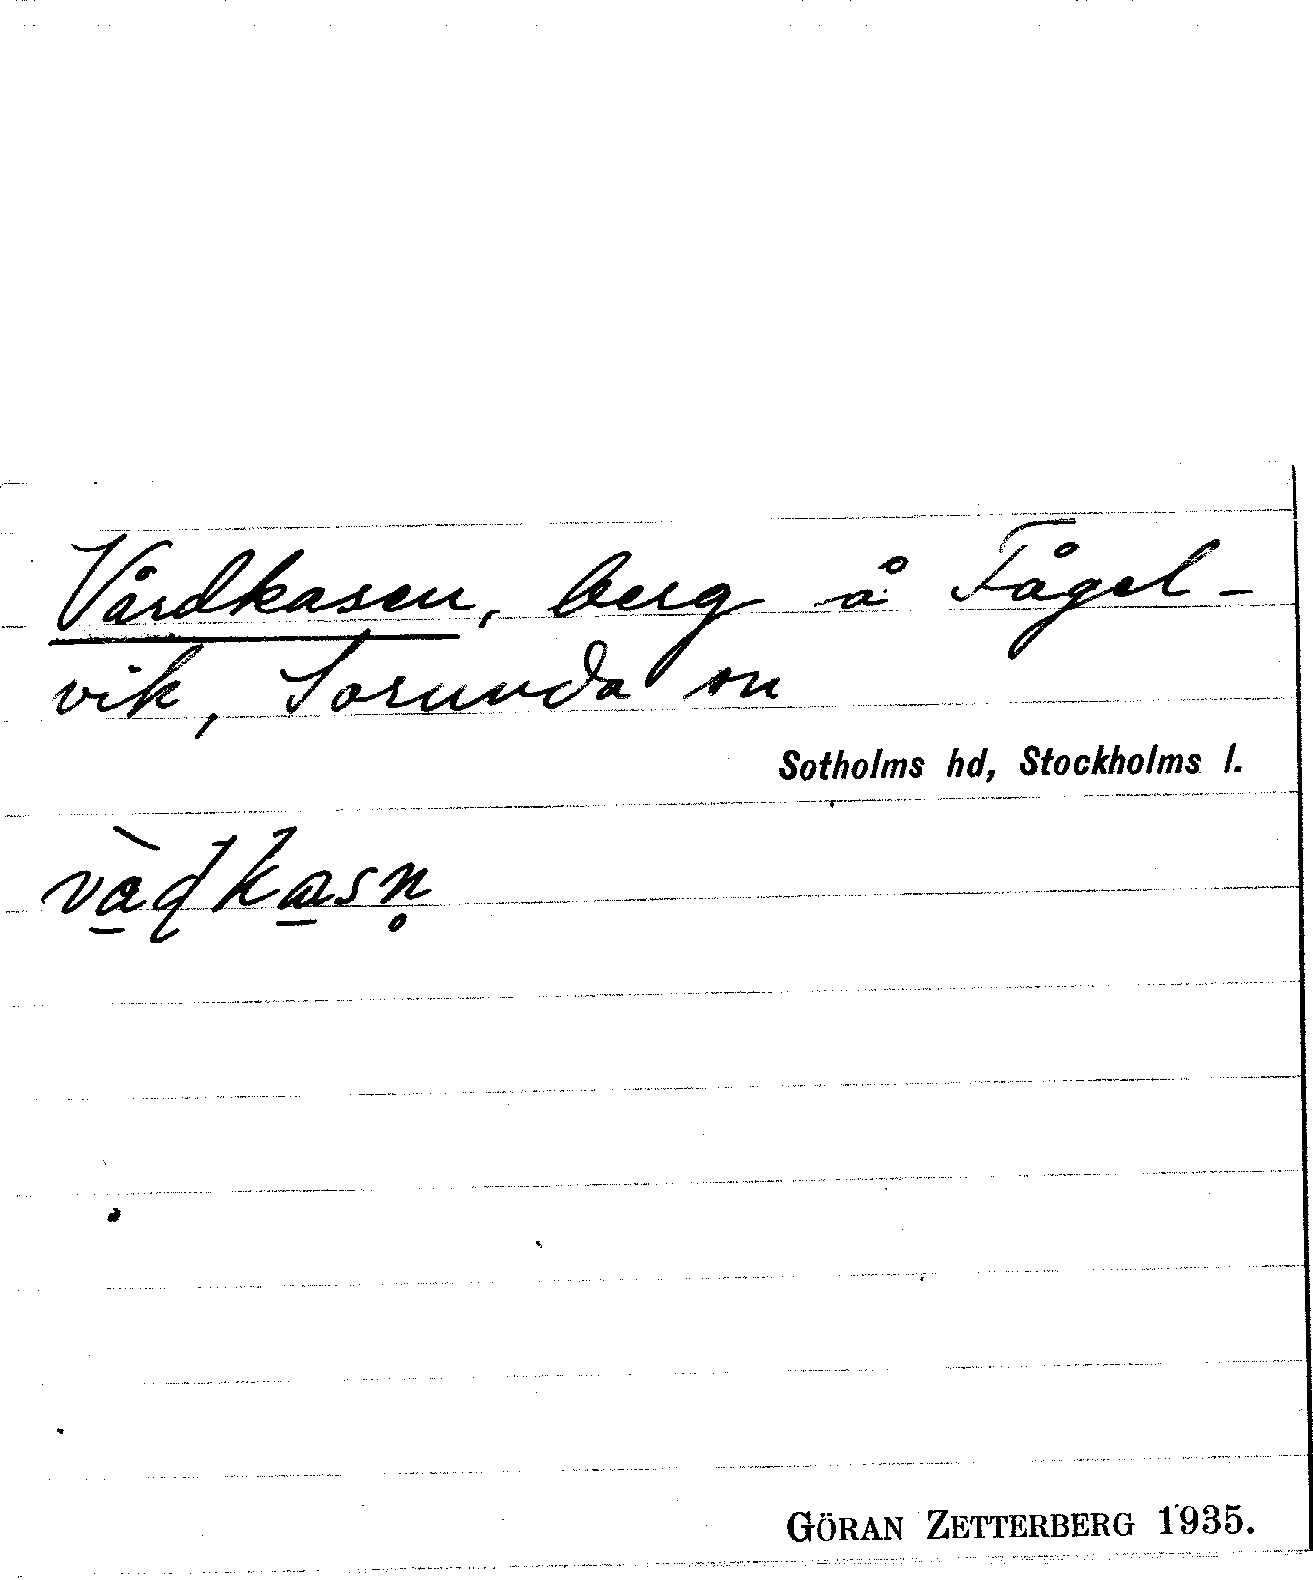 Vårdkasen, berg å Fågel-
vik, Sorunda sn
Sotholms hd, Stockholms l.
và̱ɖka̱sn̥
GÖRAN ZETTERBERG 1935.